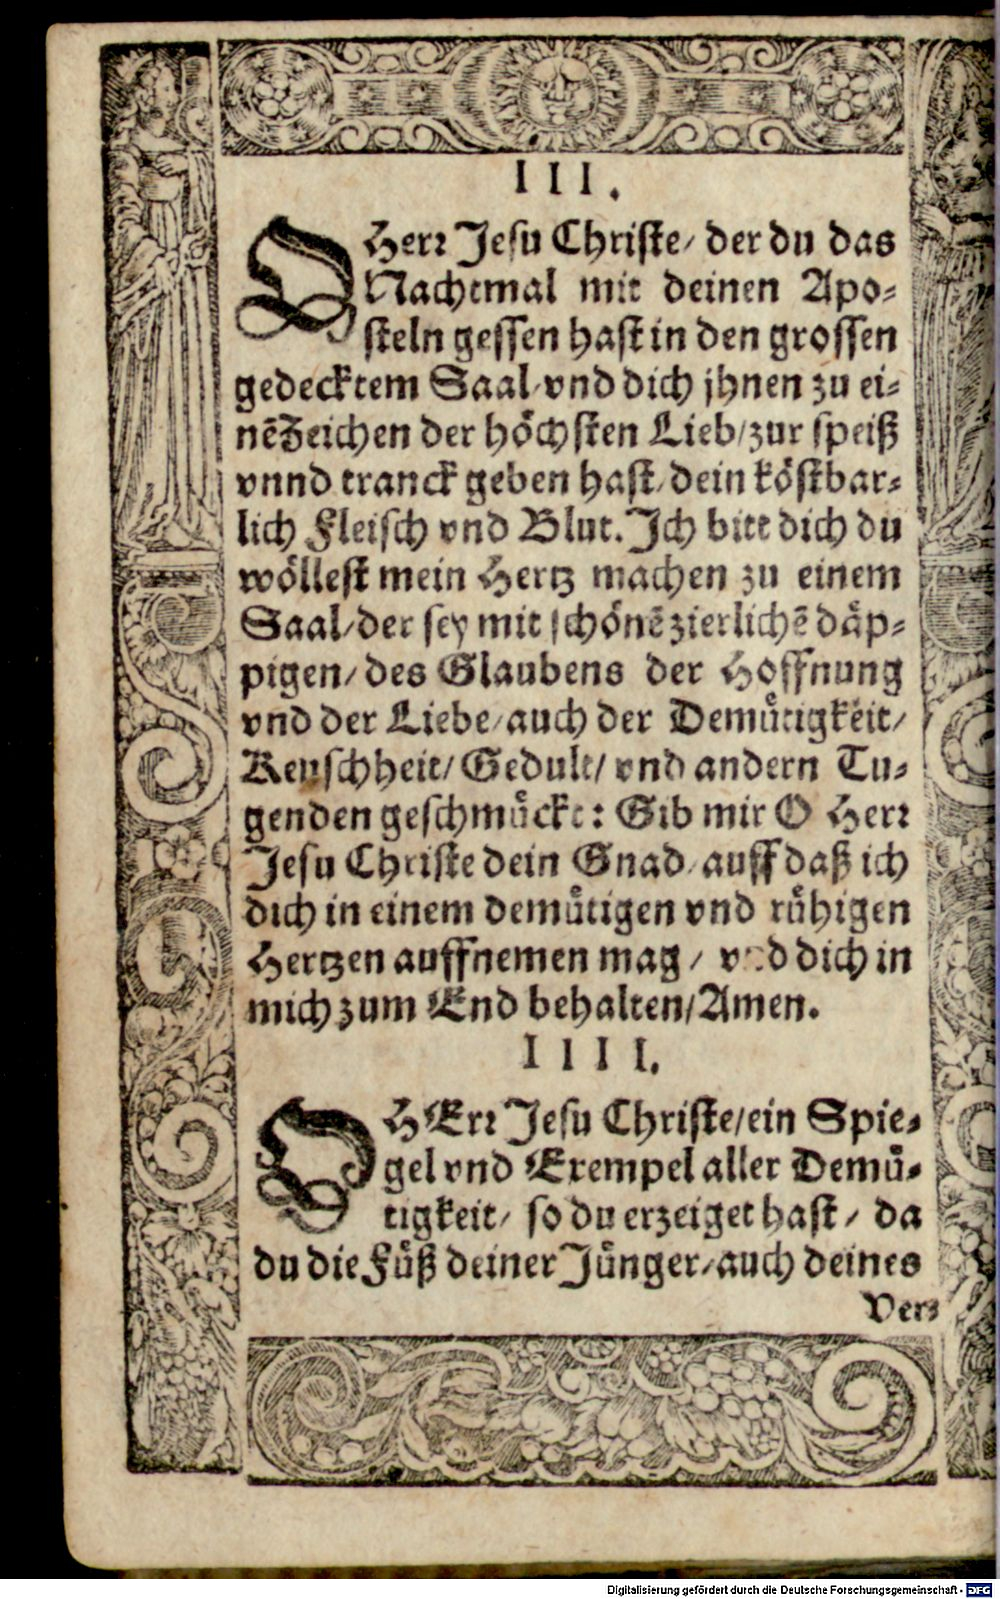 III.
O Herr Jesu Christe/ der du das
Nachtmal mit deinen Apo-
steln gessen hast in den grossen
gedecktem Saal/ vnd dich jhnen zu ei-
nẽ Zeichen der höchsten Lieb/ zur speiß
vnnd tranck geben hast/ dein köstbar-
lich Fleisch vnd Blut. Ich bitt dich du
wöllest mein Hertz machen zu einem
Saal/ der sey mit schönẽ zierlichẽ däp-
pigen/ des Glaubens der Hoffnung
vnd der Liebe/ auch der Demütigkeit/
Keuschheit/ Gedult/ vnd andern Tu-
genden geschmückt: Gib mir O Herr
Jesu Christe dein Gnad/ auff daß ich
dich in einem demütigen vnd rühigen
Hertzen auffnemen mag/ vnd dich in
mich zum End behalten/ Amen.
IIII.
O HErr Jesu Christe/ ein Spie-
gel vnd Exempel aller Demü-
tigkeit/ so du erzeiget hast/ da
du die Füß deiner Jünger/ auch deines
Ver-
Digitalisierung gefördert durch die Deutsche Forschungsgemeinschaft - DFG